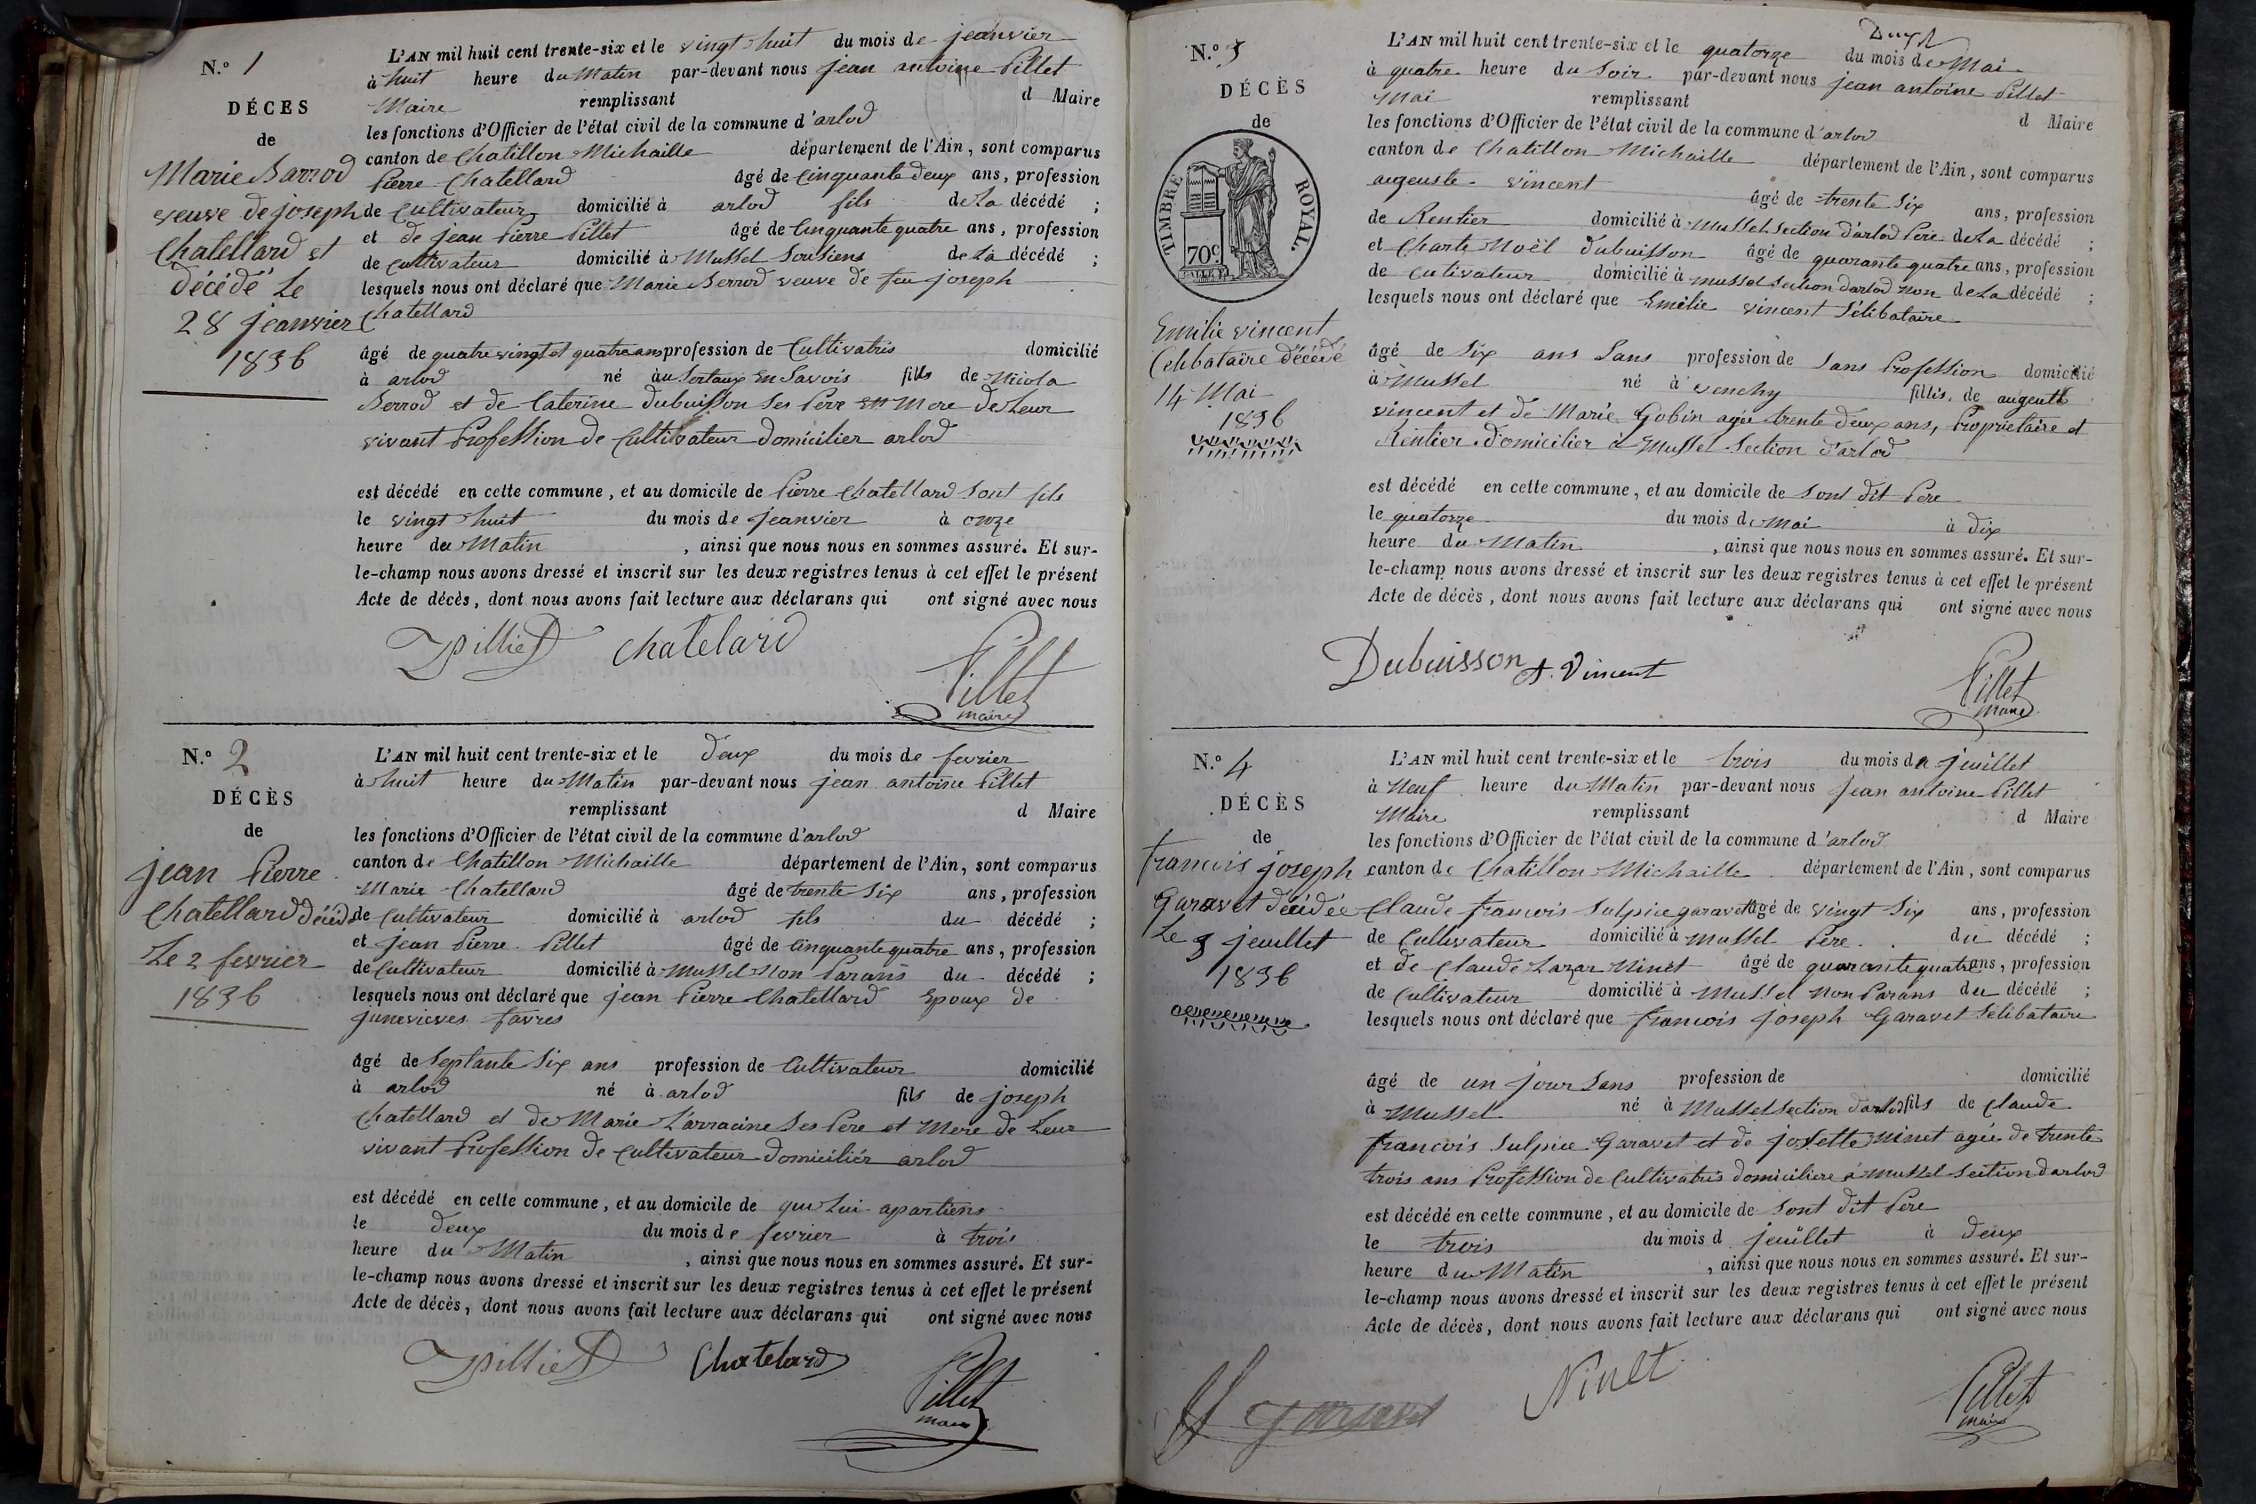 N.º 1
DÉCES
de
Marie Barrod
veuve de joseph
Chatellard et
décédé Le
28 jeanvier
1836
L'AN mil huit cent trente-six et le vingt huit du mois de jeanvier
à huit heure du Matin par-devant nous jean antoine Pillet
Maire remplissant d Maire
les fonctions d'Officier de l'état civil de la commune d'arlod
canton de Chatillon Michaille département de l'Ain, sont comparus
Pierre Chatellard âgé de Cinquante deux ans, profession
de Cultivateur domicilié à arlod fils de La décédé ;
et de jean Pierre Pillet âgé de Cinquante quatre ans, profession
de Cultivateur domicilié à Mussel de La décédé ;
lesquels nous ont déclaré que Marie Berrod veuve de feu joseph
Chatellard
âgé de quatre vingt et quatre ans profession de Cultivatris domicilié
à arlod né en Savois fille de Nicola
Berrod et de Caterine Dubuisson Ses Pere et Mere de Leur
vivant Profession de Cultivateur Domicilier arlod
est décédé en cette commune, et au domicile de Pierre Chatellard Sont fils
le vingt huit du mois de jeanvier à onze
heure du Matin , ainsi que nous nous en sommes assuré. Et sur-
le-champ nous avons dressé et inscrit sur les deux registres tenus à cet effet le présent
Acte de décès, dont nous avons fait lecture aux déclarans qui ont signé avec nous
Pilliet Chatelard
Pillet
maire
N.º 2
DÉCÈS
de
jean Pierre
Chatellard décédé
Le 2 fevrier
1836
L'AN mil huit cent trente-six et le deux du mois de fevrier
à huit heure du Matin par-devant nous jean antoine Pillet
remplissant d Maire
les fonctions d'Officier de l'état civil de la commune d'arlod
canton de Chatillon Michaille département de l'Ain, sont comparus
Marie Chatellard âgé de trente Six ans, profession
de Cultivateur domicilié à arlod fils du décédé ;
et jean Pierre Pillet âgé de Cinquante quatre ans, profession
de Cultivateur domicilié à Mussel Non Parans du décédé ;
lesquels nous ont déclaré que jean Pierre Chatellard Epoux de
junevieves favres
âgé de Septante Six ans profession de Cultivateur domicilié
à arlod né à arlod fils de joseph
Chatellard et de Marie Larracine Ses Pere et Mere de Leur
vivant Profession de Cultivateur Domiciliér arlod
est décédé en cette commune, et au domicile de qui Lui apartiens
le deux du mois de fevrier à trois
heure du Matin , ainsi que nous nous en sommes assuré. Et sur-
le-champ nous avons dressé et inscrit sur les deux registres tenus à cet effet le présent
Acte de décès, dont nous avons fait lecture aux déclarans qui ont signé avec nous
Pilliet Chatelard
Pillet
maire
N.º 3
DÉCÈS
de
TIMBRE ROYAL.
70c
Emilie vincent
Celibataire décédé
14 Mai
1836
L'AN mil huit cent trente-six et le quatorze du mois de Mai
à quatre heure du Soir par-devant nous jean antoine Pillet
Mai remplissant d Maire
les fonctions d'Officier de l'état civil de la commune d'arlod
canton de Chatillon Michaille département de l'Ain, sont comparus
augeuste vincent âgé de trente Six ans, profession
de Rentier domicilié à Mussel Section d'arlod Pere de La décédé ;
et Charle Noël Dubuisson âgé de quarante quatre ans, profession
de Cutivateur domicilié à mussel Section darlod non de La décédé ;
lesquels nous ont déclaré que Emélie vincent Sélibataire
âgé de Six ans Sans profession de Sans Profession domicilié
à Mussel né à venchy fillis de augeuste
vincent et de Marie Gobin agée trente deux ans, Proprietaire et
Rentier Domicilier à Mussel Section d'arlod
est décédé en cette commune, et au domicile de Sont dit Pere
le quatorze du mois de Mai à dix
heure du Matin , ainsi que nous nous en sommes assuré. Et sur-
le-champ nous avons dressé et inscrit sur les deux registres tenus à cet effet le présent
Acte de décès, dont nous avons fait lecture aux déclarans qui ont signé avec nous
Dubuisson A. Vincent
Pillet
maire
N.º 4
DÉCÈS
de
francois joseph
Garavet décidée
Le 3 jeuillet
1836
L'AN mil huit cent trente-six et le trois du mois de jeuillet
à Neuf heure du Matin par-devant nous jean antoine Pillet
Maire remplissant d Maire
les fonctions d'Officier de l'état civil de la commune d'arlod
canton de Chatillon Michaille département de l'Ain, sont comparus
Claude francois Sulpice garavet âgé de vingt Six ans, profession
de Cultivateur domicilié à Mussel Pere du décédé ;
et de Claude Lazar Ninet âgé de quarante quatre ans, profession
de Cultivateur domicilié à Mussel Non Parans du décédé ;
lesquels nous ont déclaré que francois joseph Garavet Selibataire
âgé de un jour Sans profession de domicilié
à Mussel né à Mussel Section d'arlod fils de Claude
francois Sulpice Garavet et de josette Ninet agée de trente
trois ans Profession de Cultivatris domiciliere à Mussel Section darlod
est décédé en cette commune, et au domicile de Sont dit Pere
le trois du mois d jeuillet à deux
heure du Matin , ainsi que nous nous en sommes assuré. Et sur-
le-champ nous avons dressé et inscrit sur les deux registres tenus à cet effet le présent
Acte de décès, dont nous avons fait lecture aux déclarans qui ont signé avec nous
Ninet
Pillet
maire